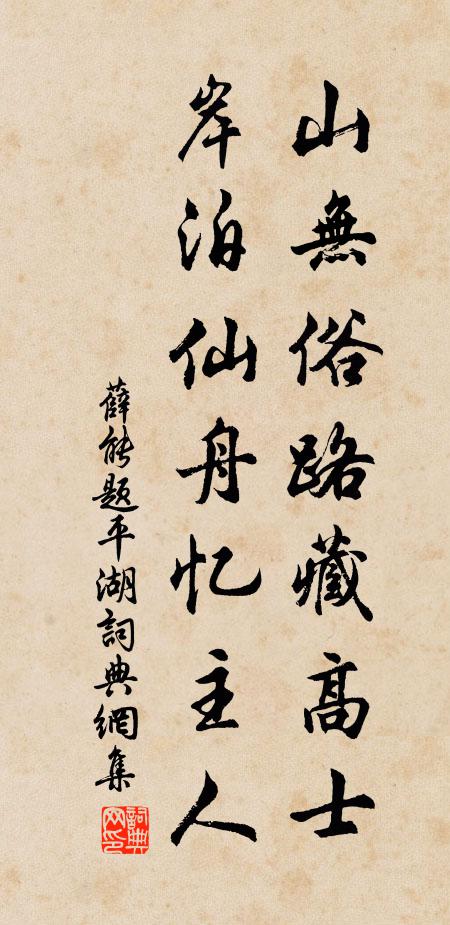 山無俗路藏高士
岸泊仙舟忆主人
薛能题平湖詞典網集
詞典网印